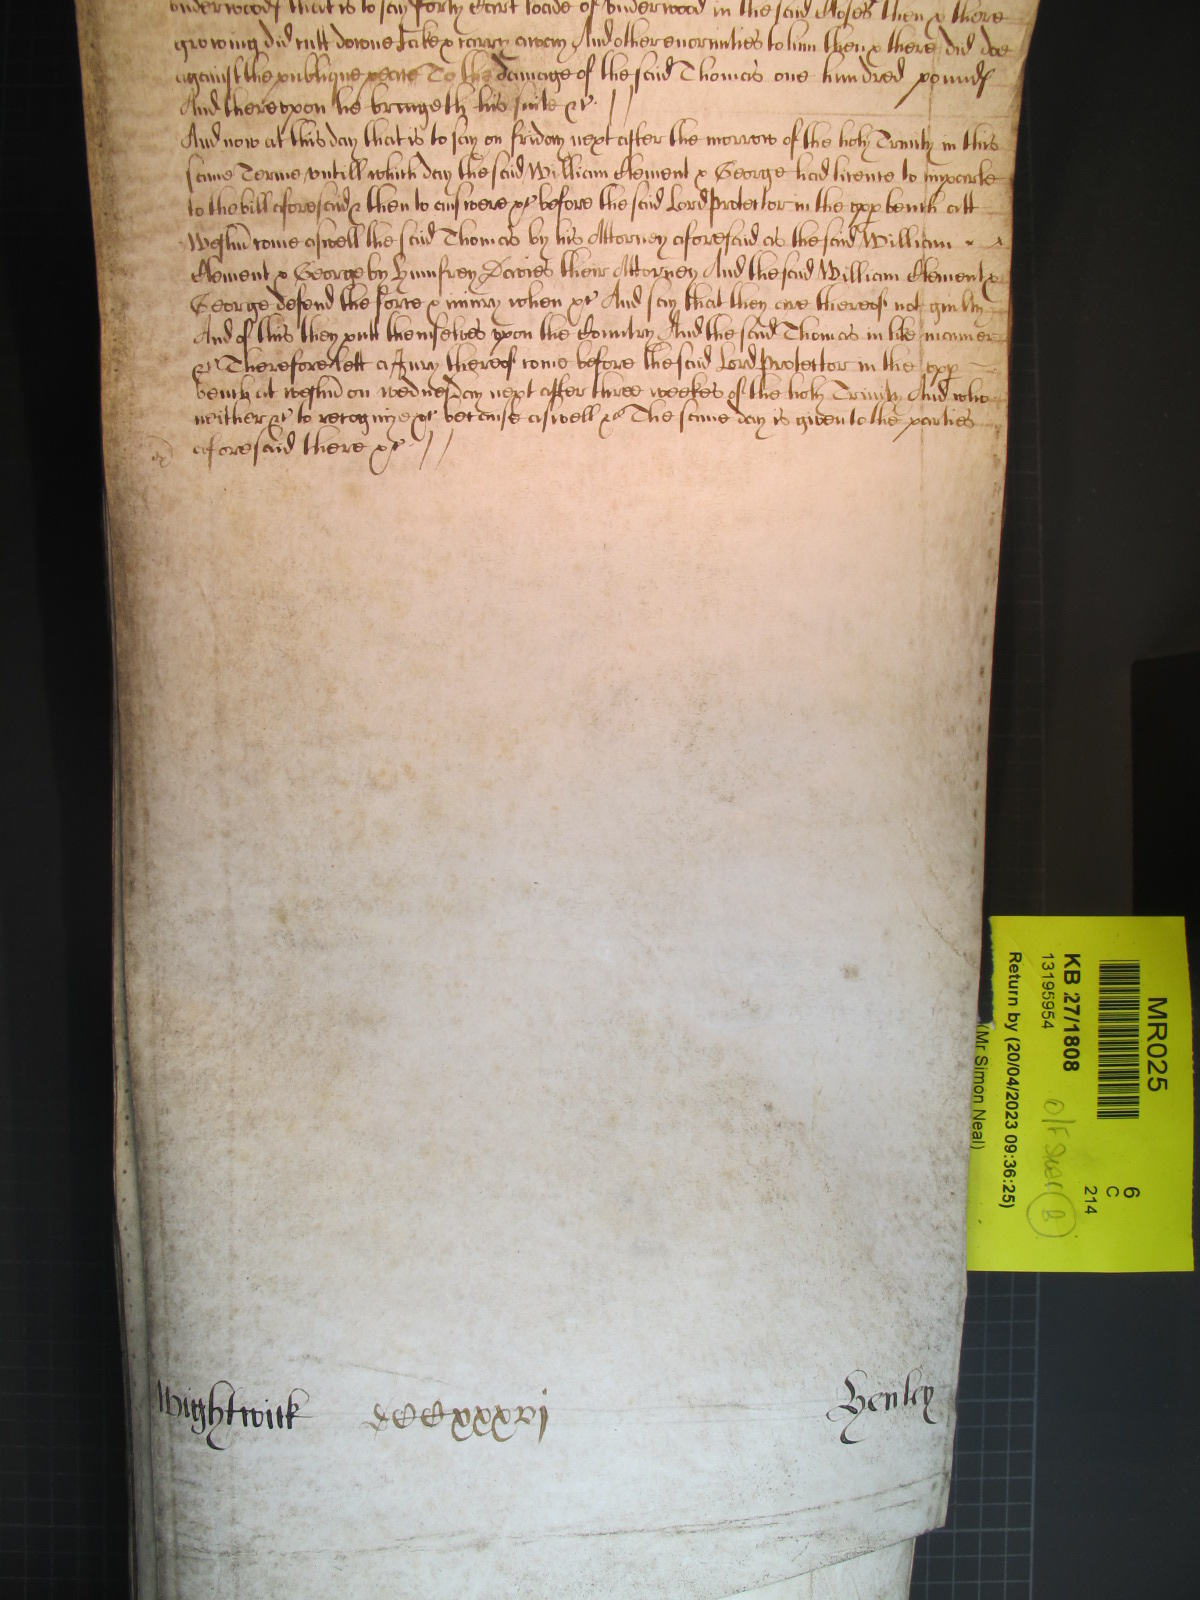 underwoods that is to say forty Cart loade of underwood in the said Closes then & there
growing did cutt downe take & carry away And other enormities to him then & there did doe
against the publique peace To the damage of the said Thomas one hundred pounds
And thereupon he bringeth his suite &c
And now at this day that is to say on friday next after the morrow of the holy Trinity in this
same Terme untill which day the said William Clement & George had licence to imparle
to the bill aforesaid & then to answere &c before the said Lord Protector in the upp bench att
Westm come aswell the said Thomas by his Attorney aforesaid as the said William
Clement & George by Humfrey Davies their Attorney And the said William Clement &
George defend the force & iniury when &c And say that they are thereof not guilty
And of this they putt themselves upon the Country And the said Thomas in like manner
&c Therefore lett a Jury thereof come before the said Lord Protector in the upp
bench at Westm on wednesday next after three weekes of the holy Trinity And who
neither &c to recognize &c because aswell &c The same day is given to the parties
aforesaid there &c
Wightwick DCCCxxxvj Henley
MR025
KB 27/1808
13195954
Return by (20/04/2023 09:36:25)
(Mr Simon Neal)
6
C
214